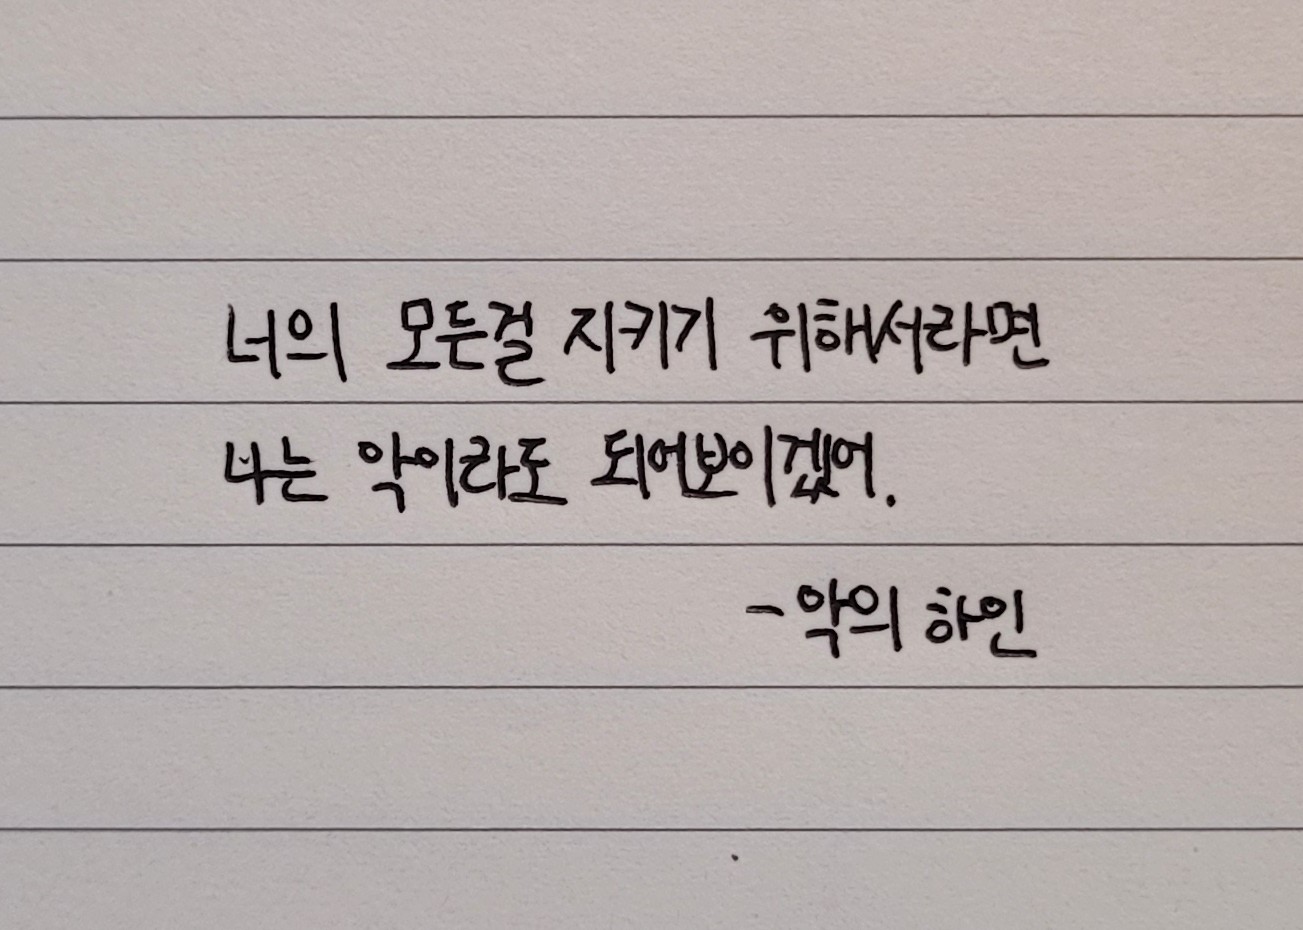 너의 모든걸 지키기 위해서라면
나는 악이라도 되어보이겠어.
- 악의 하인